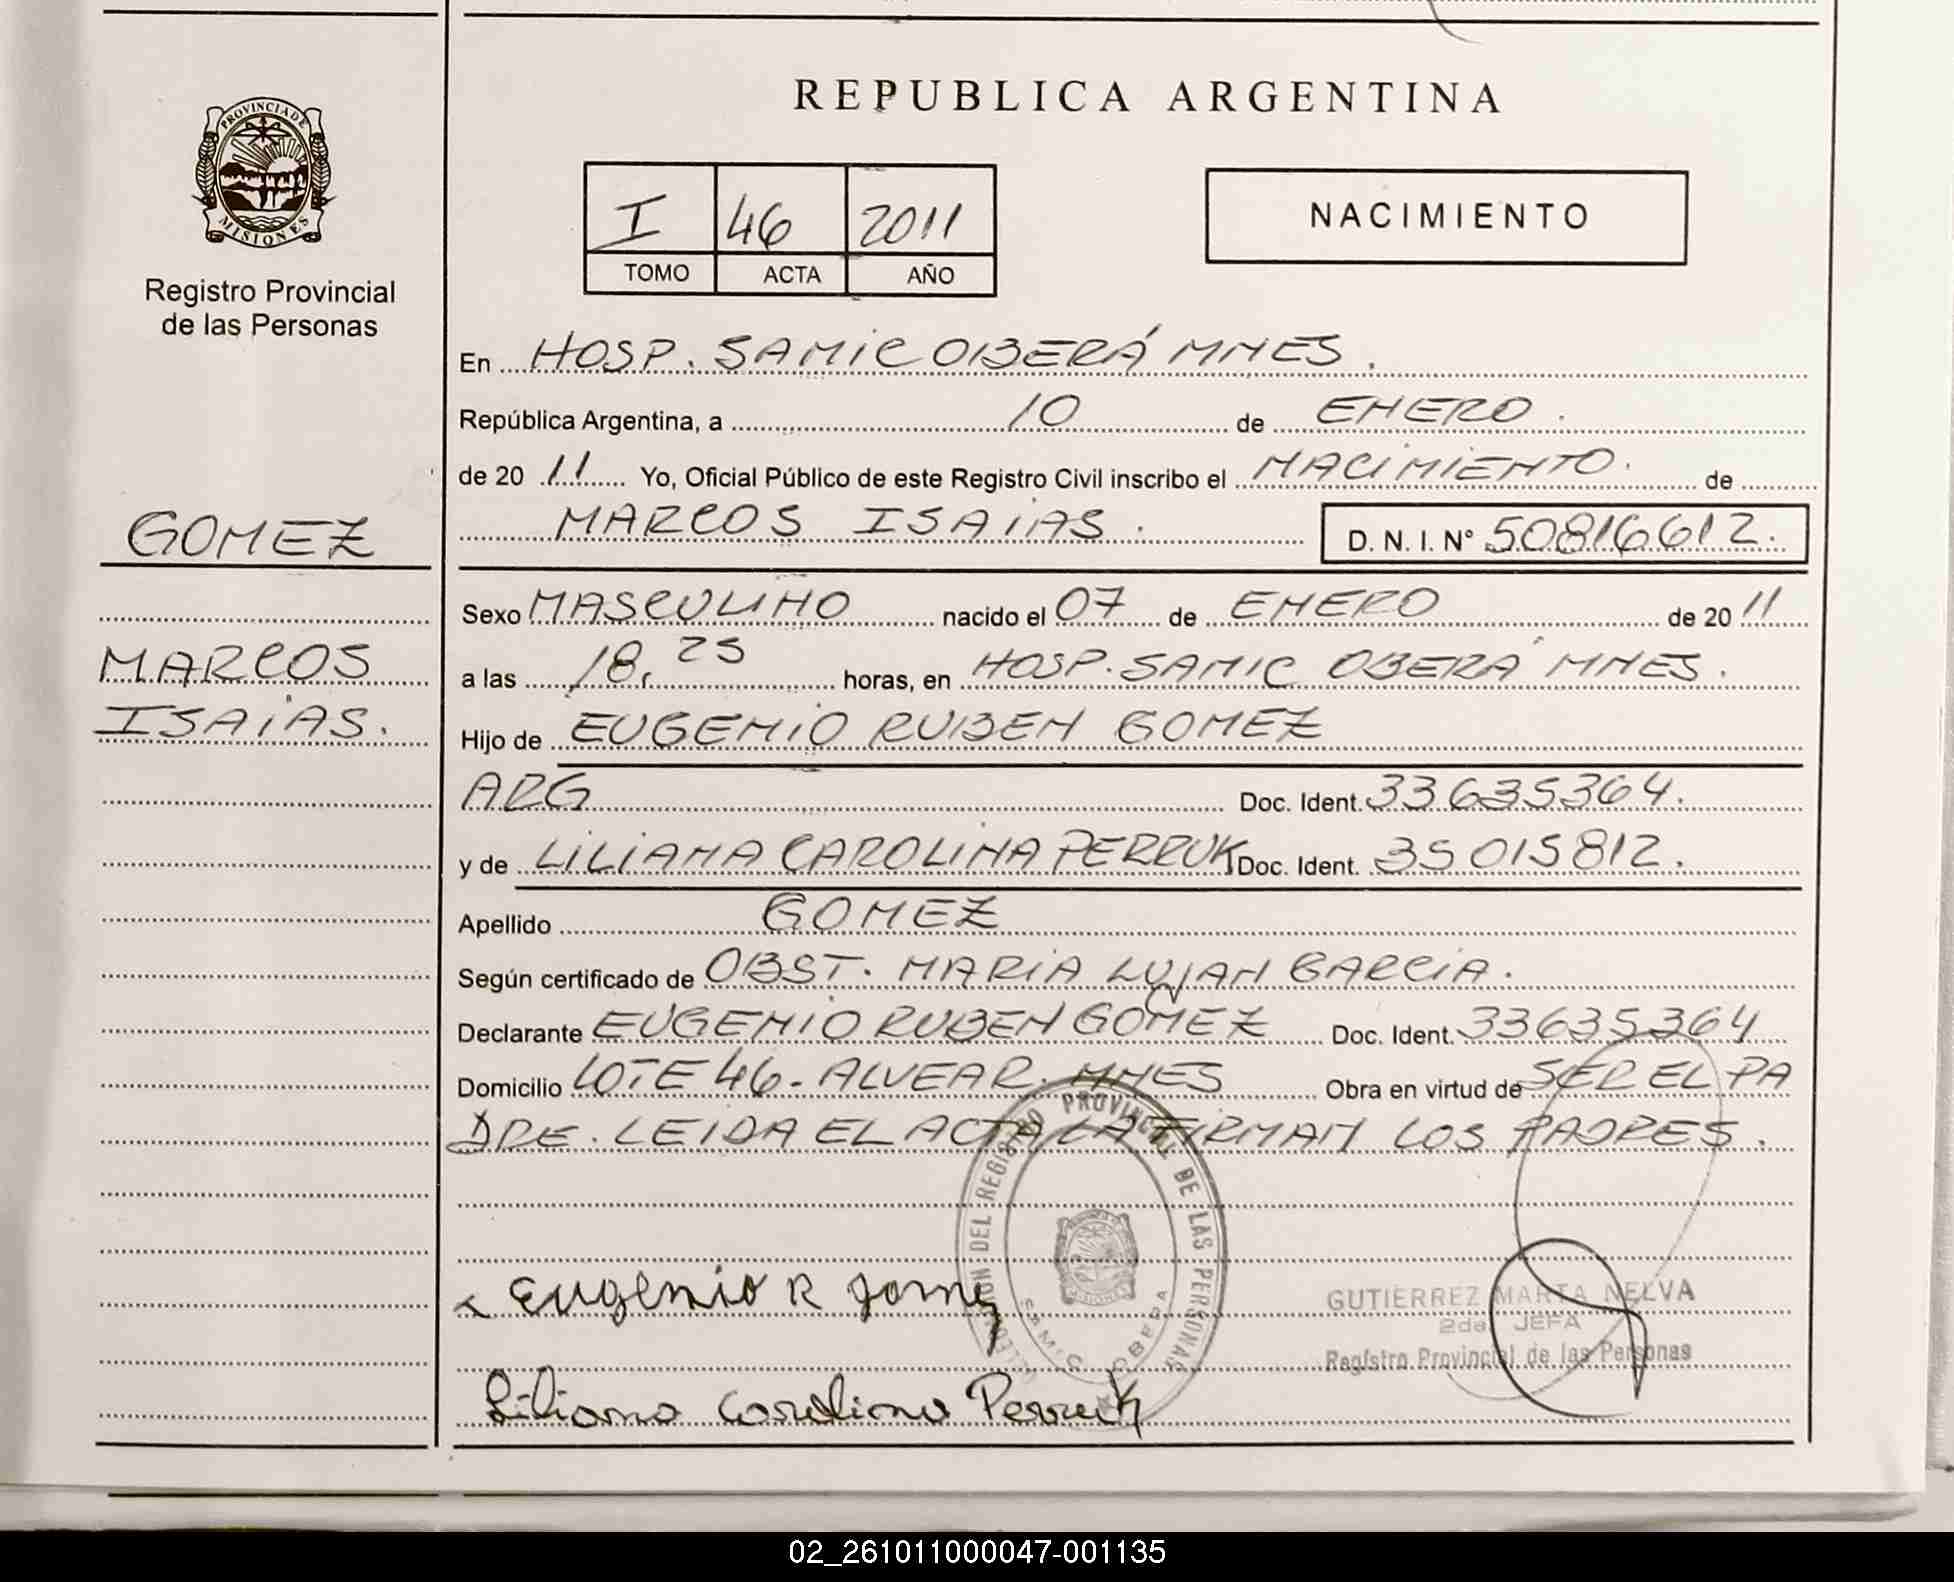 REPUBLICA ARGENTINA
PROVINCIA DE
MISIONES
Registro Provincial
de las Personas
I 46 2011
TOMO ACTA AÑO
NACIMIENTO
En HOSP. SAMIC OBERÁ MNES.
República Argentina, a 10 de ENERO.
de 20 11 Yo, Oficial Público de este Registro Civil inscribo el NACIMIENTO. de
MARCOS ISAIAS. D. N. I. N° 50816612.
GOMEZ
MARCOS
ISAIAS.
Sexo MASCULINO nacido el 07 de ENERO de 20 11
a las 18,25 horas, en HOSP. SAMIC OBERÁ MNES.
Hijo de EUGENIO RUBEN GOMEZ
ARG Doc. Ident. 33635364.
y de LILIANA CAROLINA PERRUK Doc. Ident. 35015812.
Apellido GOMEZ
Según certificado de OBST. MARIA LUJAN GARCIA.
Declarante EUGENIO RUBEN GOMEZ Doc. Ident. 33635364
Domicilio LOTE 46 - ALVEAR. MNES Obra en virtud de SER EL PA
DRE. LEIDA EL ACTA LA FIRMAN LOS PADRES.
DEL REGISTRO PROVINCIAL DE LAS PERSONAS
SAMIC OBERA
Eugenio R Gomez
GUTIERREZ MARTA NELVA
2da. JEFA
Registro Provincial de las Personas
Liliana Carolina Perruk
02_261011000047-001135